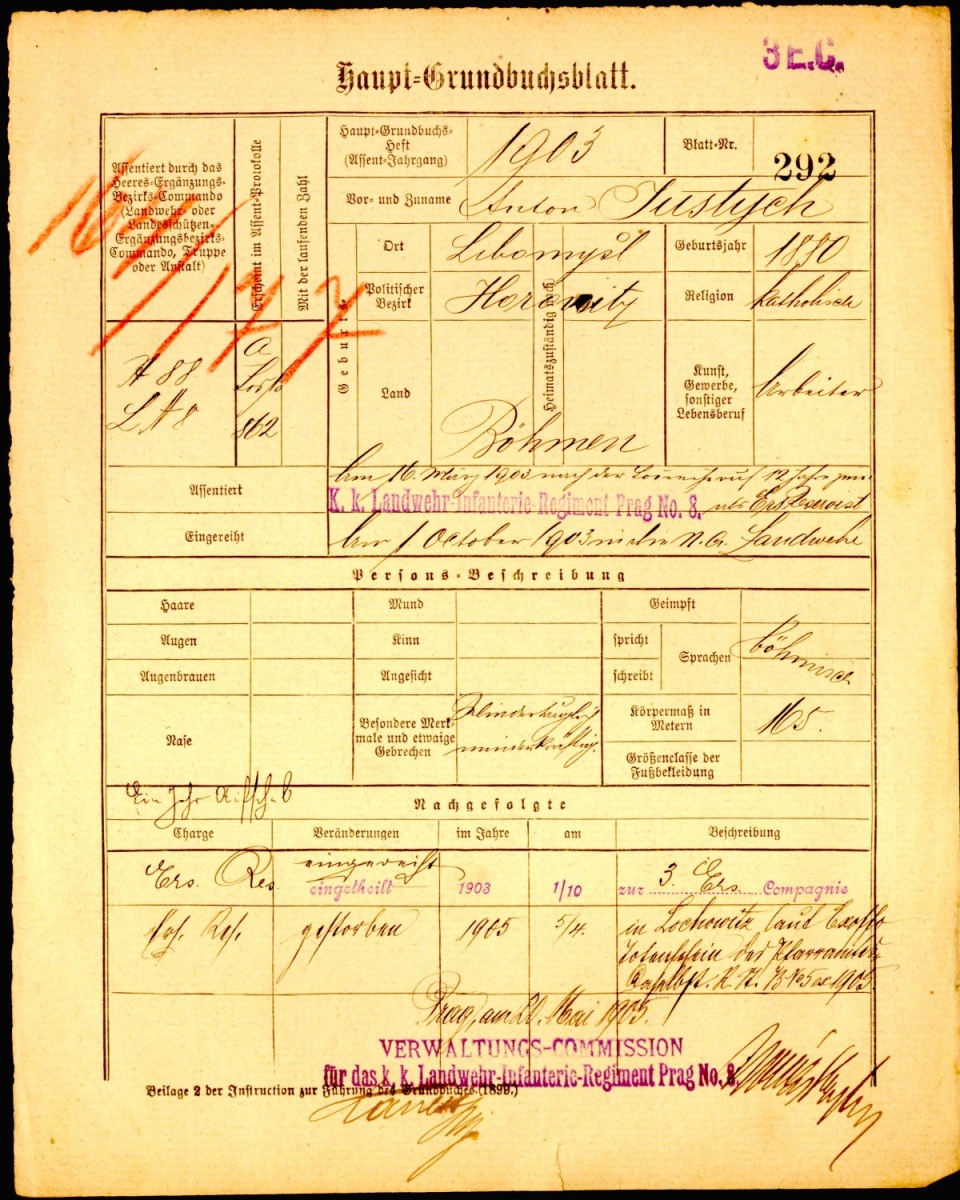 3 E.C.
Haupt=Grundbuchsblatt.
Assentiert durch das
Heeres=Ergänzungs=
Bezirks=Commando
(Landwehr= oder
Landesschützen=
Ergänzungsbezirks=
Commando, Truppe
oder Anstalt)
Erscheint im Assent=Protokolle
Mit der laufenden Zahl
Haupt=Grundbuchs=
Heft
(Assent=Jahrgang)
1903
Blatt=Nr.
292
Vor= und Zuname
Anton Justych
Geburts=
Ort
Libomyšl
Heimatszuständig nach
Geburtsjahr
1880
Politischer
Bezirk
Horowitz
Religion
katholisch
Land
Böhmen
Kunst,
Gewerbe,
sonstiger
Lebensberuf
Arbeiter
A 88
L A 8
a
862
Assentiert
Am 16. März 1903 nach der 12 Jahre
K. k. Landwehr-Infanterie-Regiment Prag No. 8.
als Ers. Reservist
Eingereiht
Am 1 October 1903 in die Landwehr
Persons=Beschreibung
Haare
Mund
Geimpft
Augen
Kinn
spricht
schreibt
Sprachen
böhmisch
Augenbrauen
Angesicht
Nase
Besondere Merk=
male und etwaige
Gebrechen
Mindertauglich
minderkräftig.
Körpermaß in
Metern
165.
Größenclasse der
Fußbekleidung
Ein Jahr Aufschub
Nachgefolgte
Charge
Veränderungen
im Jahre
am
Beschreibung
Ers. Res.
eingereiht
eingetheilt
1903
1/10
zur 3. Ers. Compagnie
Ers. Res.
gestorben
1905
5/4.
in Lochowitz laut
Totenschein des Pfarramtes
Daselbst. 1905
Prag, am 20. Mai 1905.
VERWALTUNGS-COMMISSION
für das k. k. Landwehr-Infanterie-Regiment Prag No. 8.
Beilage 2 der Instruction zur Führung des Grundbuches. (1899.)